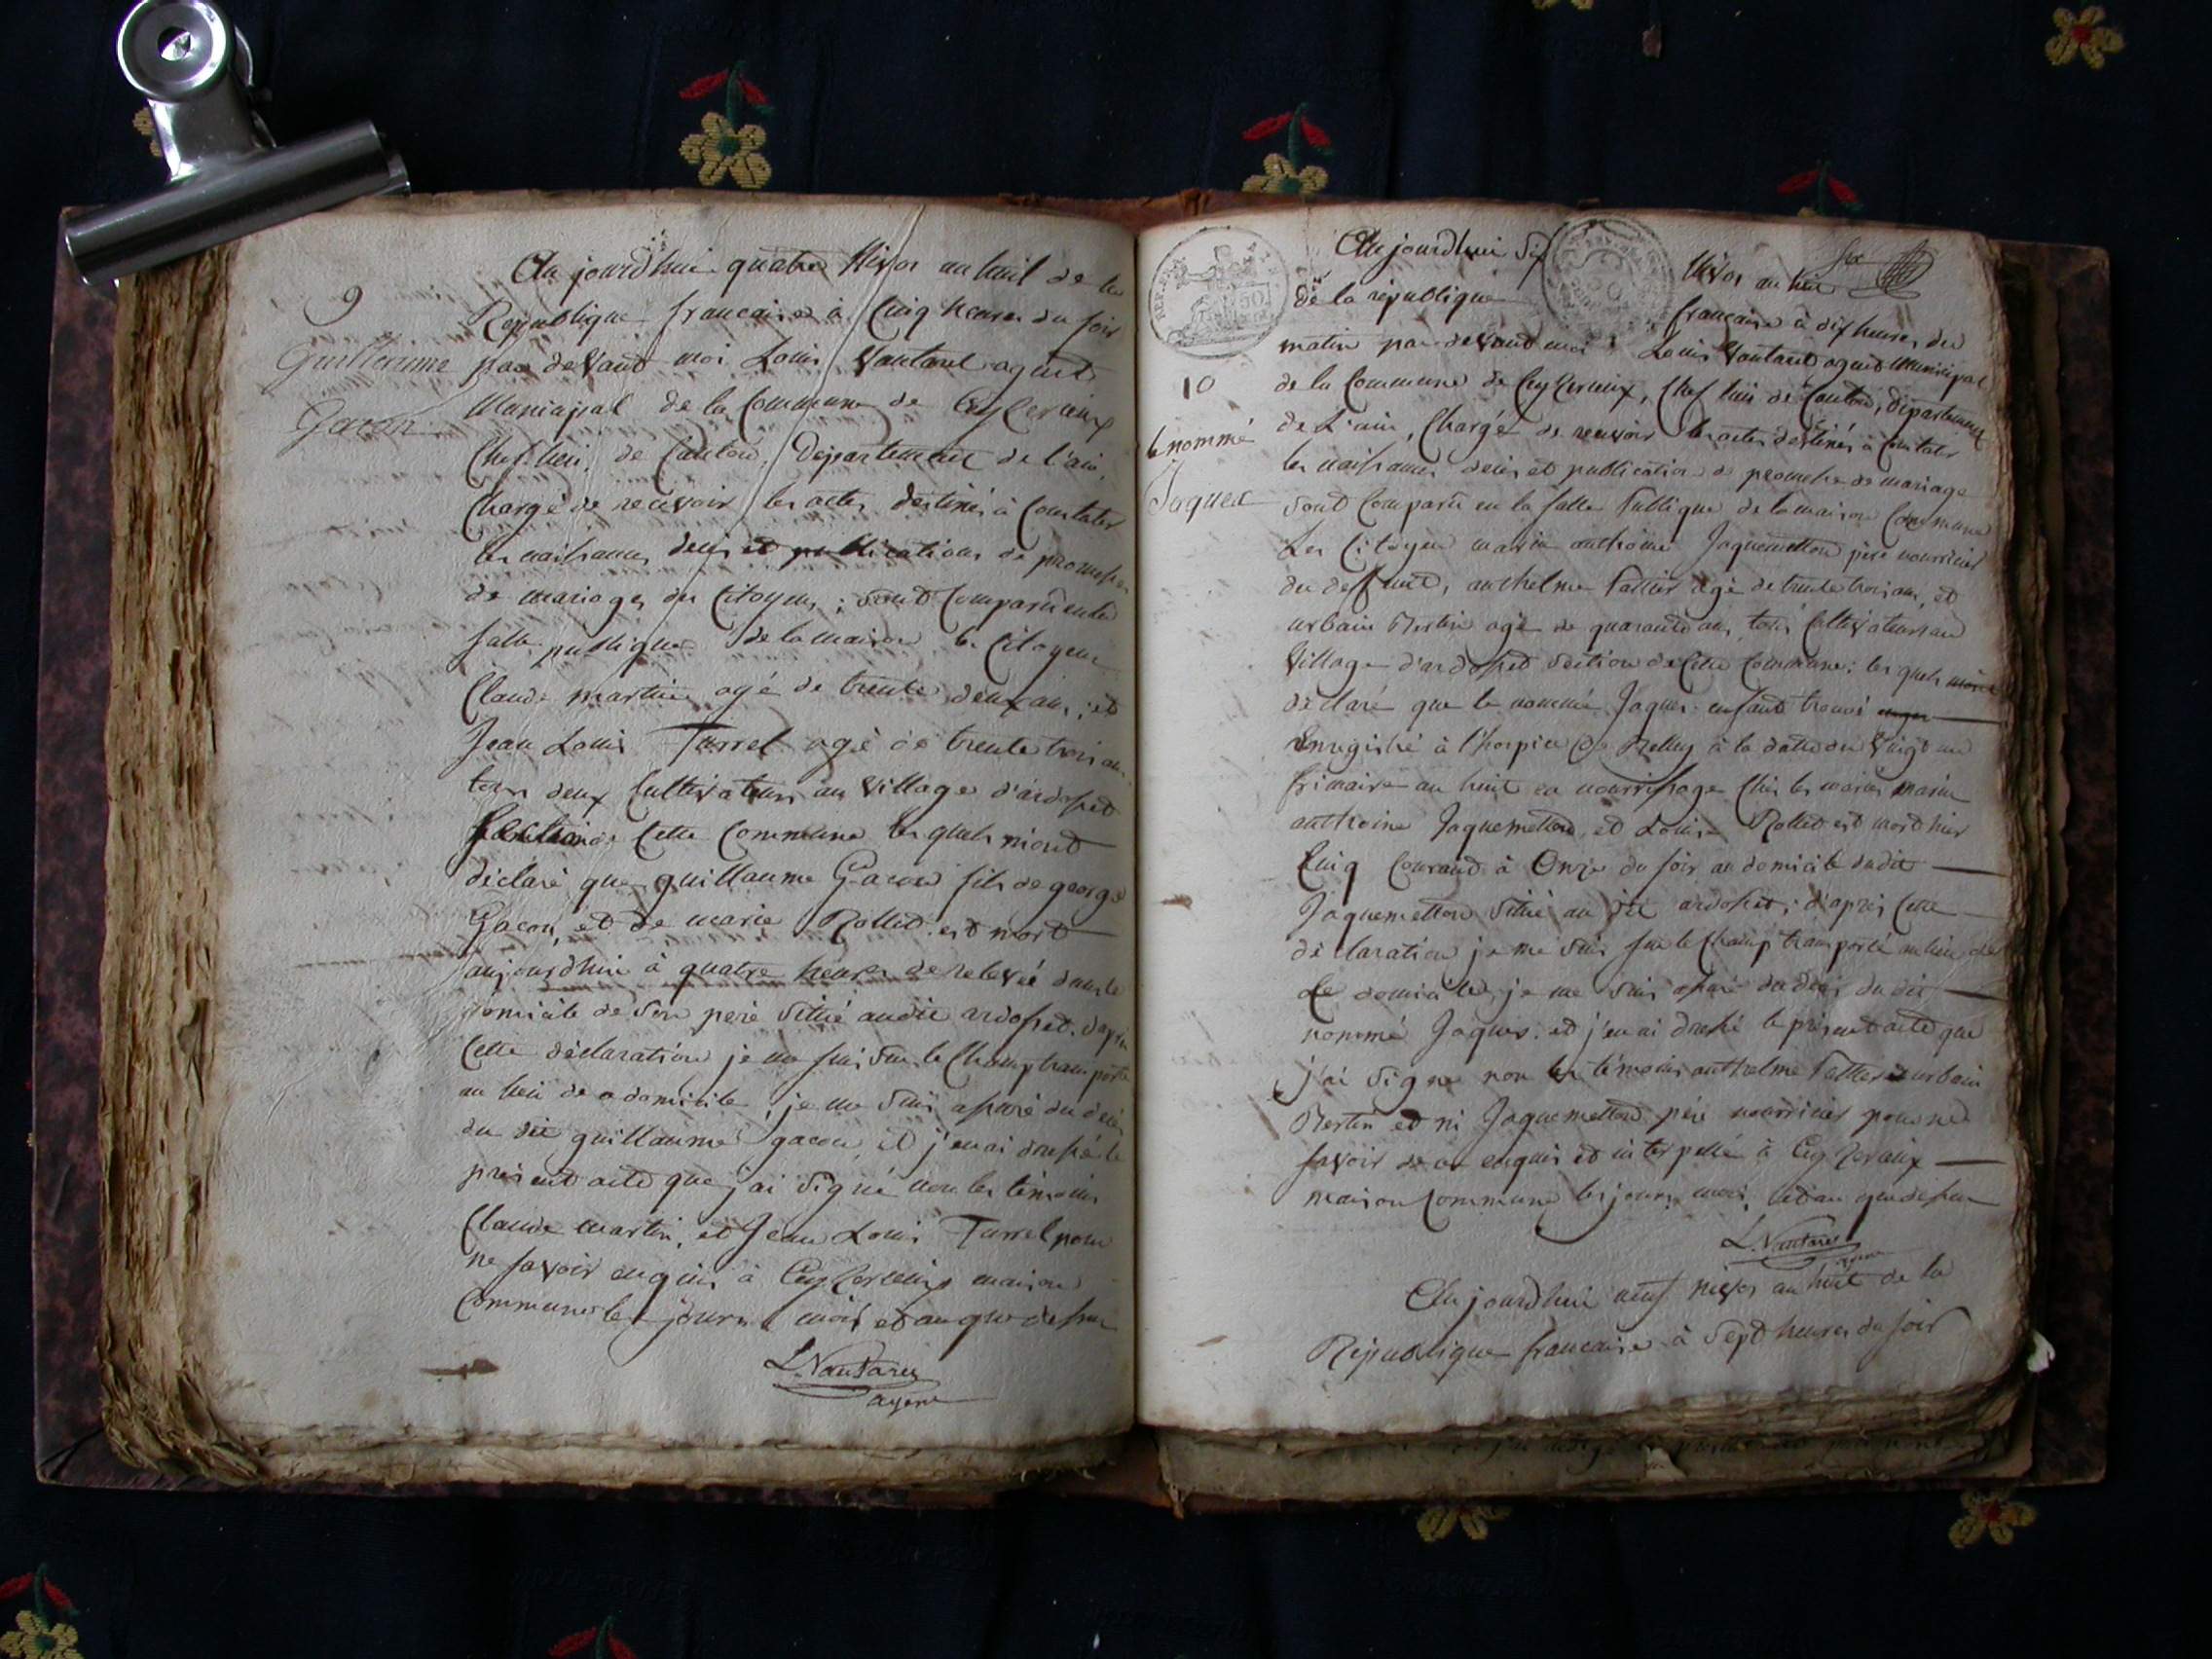 9
Guillaume
Gacon
Au jourd'huie quatre Nivos an huit de la
République francaise à Cinq heures du soir
par devant moi Louis Vautaret agent
Municipal de la Commune de Ceyzerieux
Chef lieu de Canton, Département de l'ain
Chargé de recevoir les actes destinés à Constater
les naissances, decès et publications de promesses
de mariages des Citoyens ; sont Comparû en la
salle publique de la maison le Citoyens
Claude martin agé de trente deux ans ; et
Jean Louis Turrel agé de trente trois ans
tous deux Cultivateurs au Village d'ardosset
Section de Cette Commune les quels m'ont
déclaré que guillaume Gacon fils de george
Gacon, et de marie Rollet est mort
aujourdhui à quatre heures de relevée dans le
domicile de son père Situé audit ardosset. d'après
Cette déclaration je me suis sur le Champ transporté
au lieu de domicile, je me suis assuré du decès
du dit guillaume gacon, et j'en ai dressé le
présent acte que j'ai signé non les témoins
Claude martin, et Jean Louis Turrel pour
ne savoir enquis à Ceyzerieux maison
Commune les jours mois et an que dessus
L. Vautaret
agent
REP. FRA
50
10
le nommé
Jaques
Au jourdhui Six Nivos an huit
de la république francaise à dix heures du
matin par devant moi Louis Vautaret agent Municipal
de la Commune de Ceyzerieux, Chef lieu de Canton, département
de L'ain, Chargé de recevoir les actes destinés à Constater
les naissances decès et publication de promesse de mariage
sont Comparû en la salle Publique de la maison Commune
Les Citoyens marin anthoine Jaquemetton père nourricier
du deffunt, anthelme agé de trente trois ans, et
urbain Bertin agé de quarante ans, tous Cultivateurs au
Village d'ardosset Section de Cette Commune ; les quels mont
déclaré que le nommé Jaques enfant trouvé
Enregistré à l'hospice de Belley à la datte du Vingt un
frimaire an huit en nourrissage Chés les mariés marin
anthoine Jaquemetton, et Louise Rollet est mort hier
Cinq Courant à Onze du soir au domicile dudit
Jaquemetton Situé au dit ardosset ; d'après Cette
déclaration je me suis sur le Champ transporté au lieu de
Le domicile, je me suis assuré du decès du dit
nommé Jaques. et j'en ai dressé le présent acte que
j'ai signé non les témoins anthelme et urbain
Bertin et ni Jaquemetton père nourricier pour ne
savoir de ce enquis et interpellé à Ceyzerieux
maison Commune les jours, mois, et an que dessus
L. Vautaret
agent
Au jourdhui neuf nivos an huit de la
République francaise à Sept heures du soir